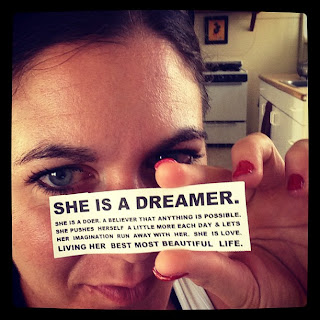 SHE IS A DREAMER.
SHE IS A DOER. A BELIEVER THAT ANYTHING IS POSSIBLE.
SHE PUSHES HERSELF A LITTLE MORE EACH DAY & LETS
HER IMAGINATION RUN AWAY WITH HER. SHE IS LOVE.
LIVING HER BEST MOST BEAUTIFUL LIFE.